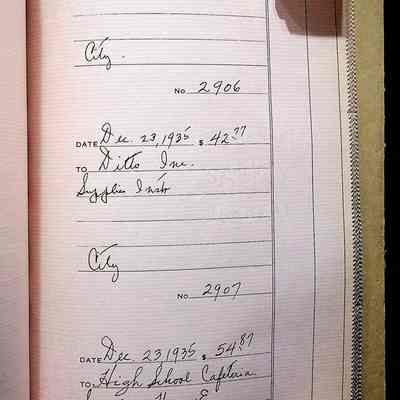 City.
No 2906
DATE Dec. 23, 1935 $ 42.77
TO Ditto Inc.
Supplies Instr
City
No 2907
DATE Dec. 23 1935 $ 54.87
TO High School Cafeteria